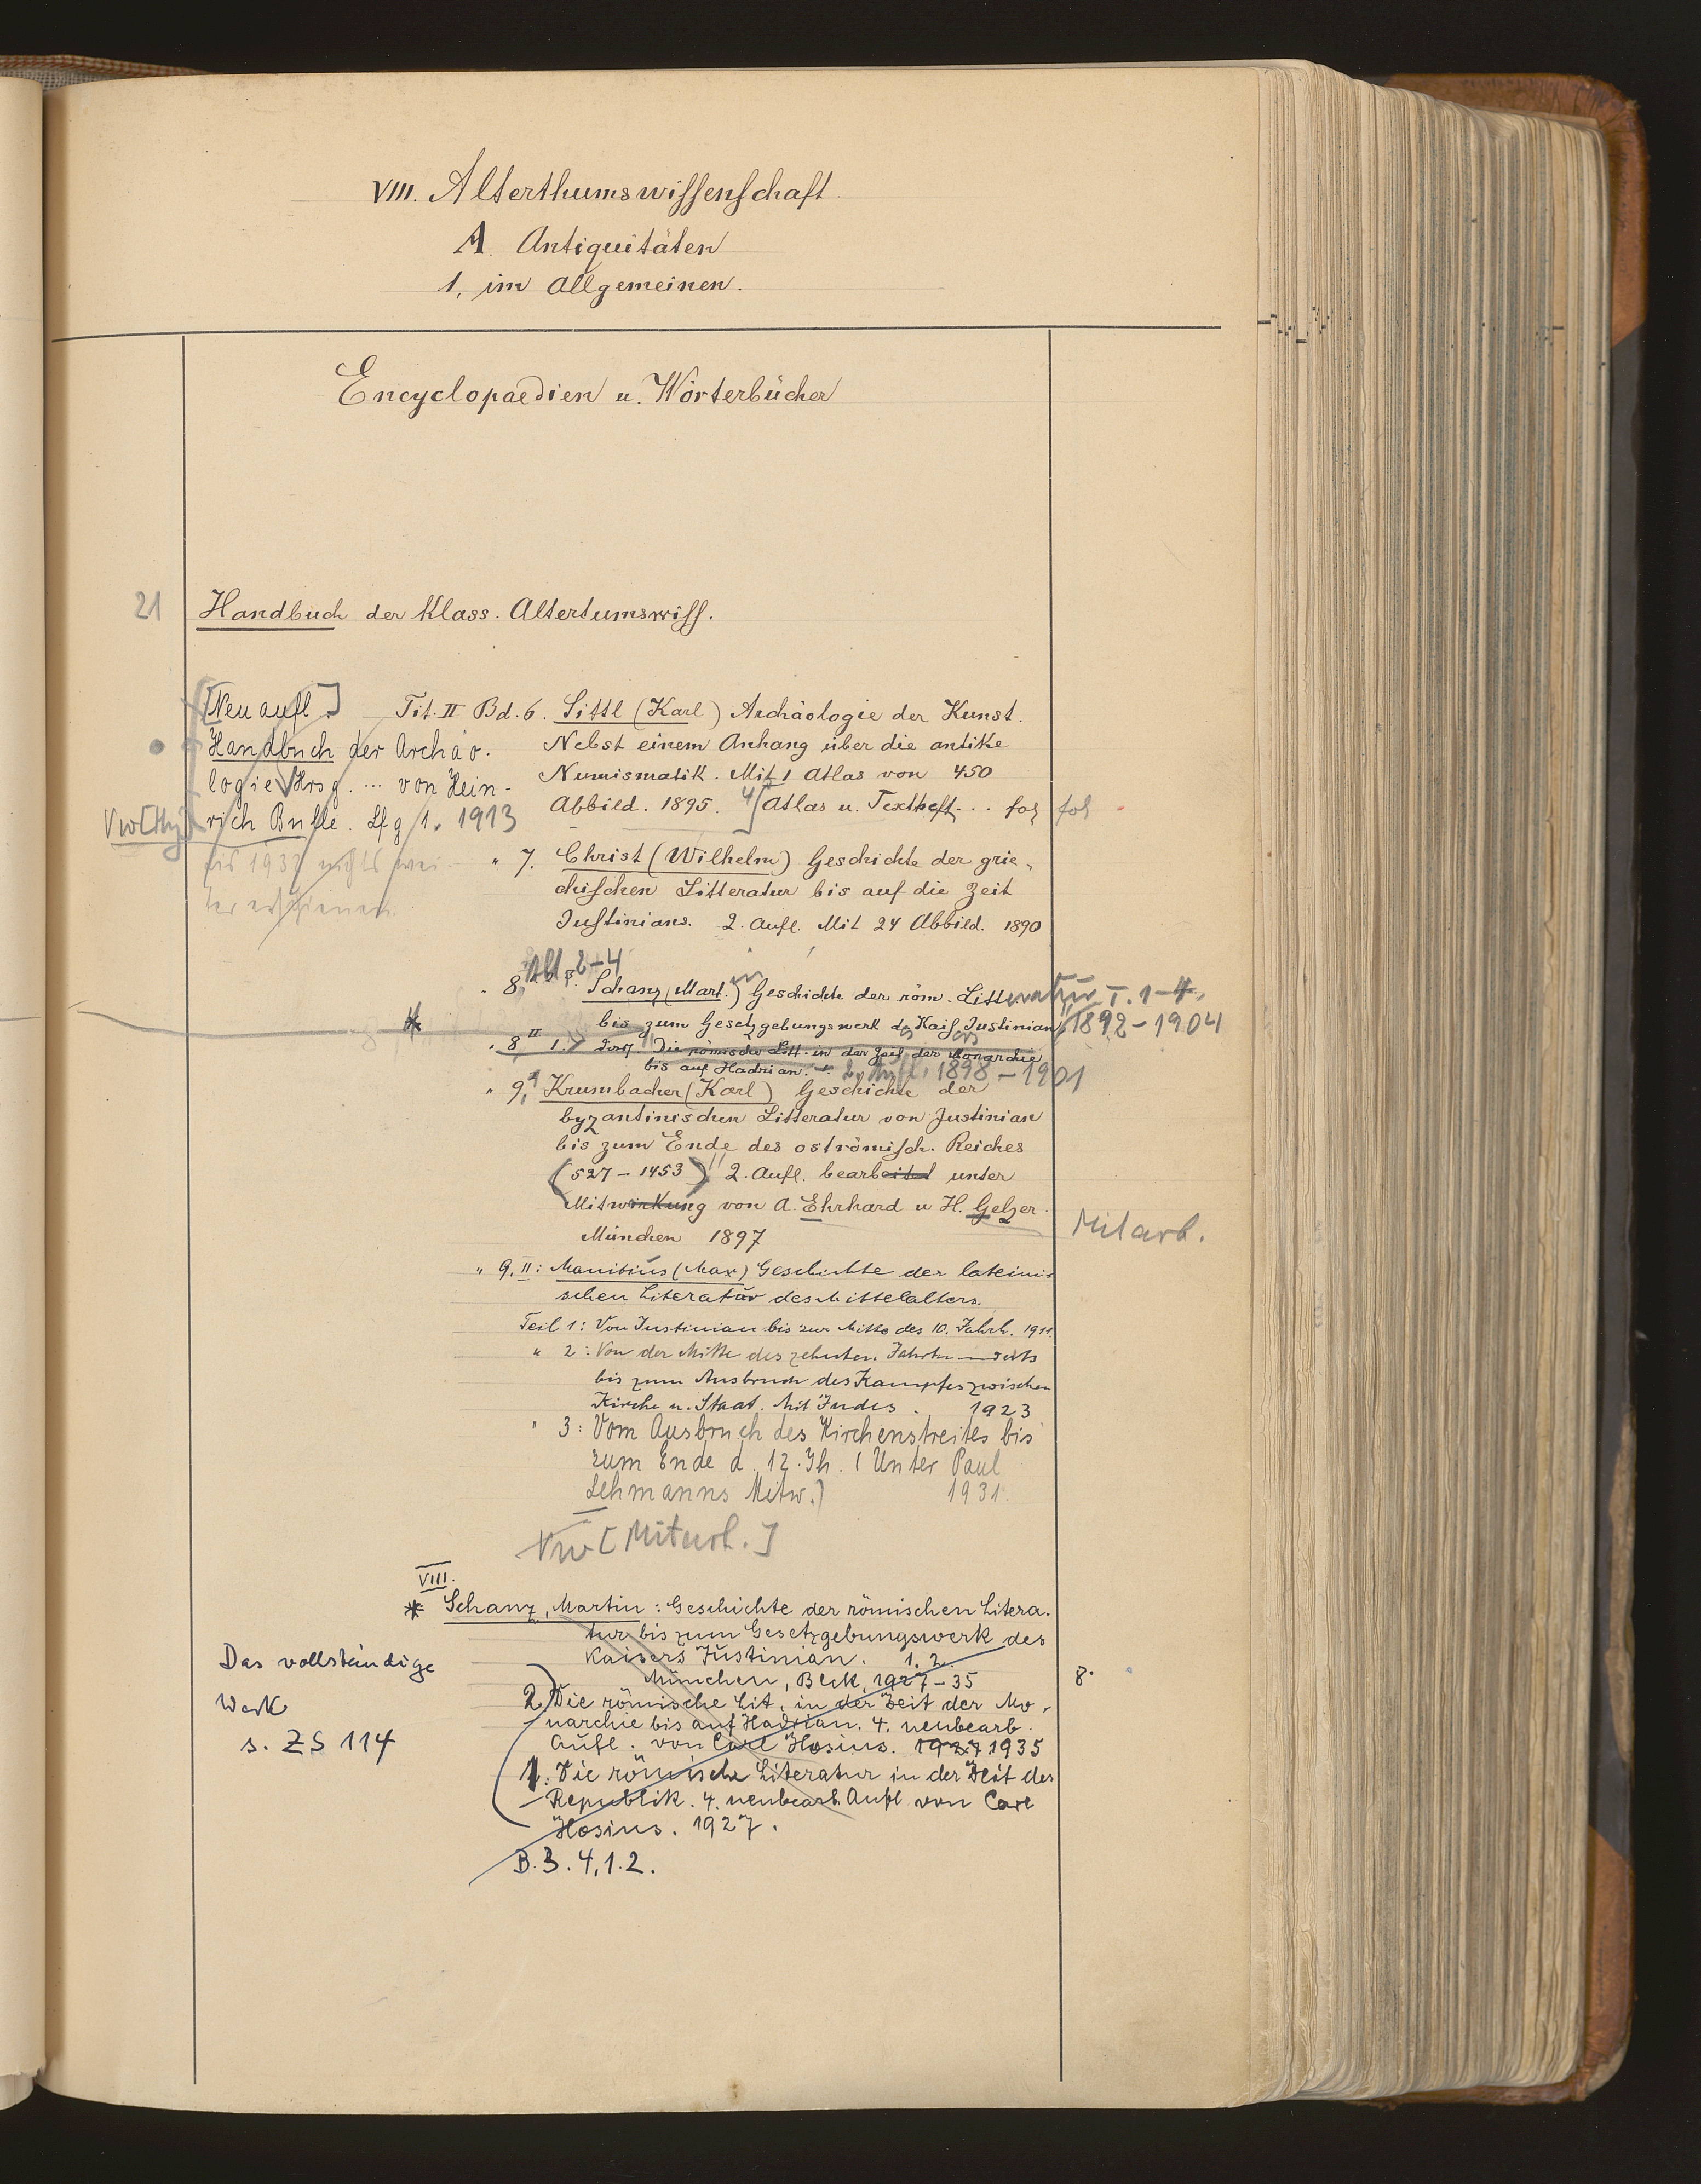 VIII. Alterthumswissenschaft.
A. Antiquitäten
1, im Allgemeinen.
Encyclopaedien u. Wörterbücher
21 Handbuch der Klass. Altertumswiss.
[Neuaufl.]
Handbuch der Archäo-
logie Hrsg. ... von Hein-
rich Bulle. Lfg 1. 1913
bis 1932 nichts wei-
ter erschienen.
Tit. II Bd. 6. Sittl (Karl) Archäologie der Kunst.
Nebst einem Anhang über die antike
Numismatik. Mit 1 Atlas von 450
Abbild. 1895. 4/ Atlas u. Textheft... fol fol
" 7. Christ (Wilhelm) Geschichte der grie-
chischen Litteratur bis auf die Zeit
Justinians. 2. Aufl. Mit 24 Abbild. 1890
" 8, Abt 2-4 Schanz (Mart.) Geschichte der röm. Litteratur T. 1-4,
bis zum Gesetzgebungswerk d. Kais. Justinian 1892-1904
" 8, II 1. Die römische Litt. in der Zeit der Monarchie
bis auf Hadrian. 2. Aufl. 1898-1901
" 9,1 Krumbacher (Karl) Geschichte der
byzantinischen Litteratur von Justinian
bis zum Ende des oströmisch. Reiches
(527-1453) 2. Aufl. bearbeitet unter
Mitwirkung von A. Ehrhard u H. Gelzer.
Mitarb.
München 1897
" 9, II: Manitius (Max) Geschichte der lateini-
schen Literatur des Mittelalters.
Teil 1: Von Justinian bis zur Mitte des 10. Jahrh. 1911.
" 2: Von der Mitte des zehnten Jahrhunderts
bis zum Ausbruch des Kampfes zwischen
Kirche u. Staat. Mit Index. 1923
" 3: Vom Ausbruch des Kirchenstreites bis
zum Ende d. 12. Jh. (Unter Paul
Lehmanns Mitw.) 1931.
Vw [Mitarb.]
VIII.
* Schanz, Martin: Geschichte der römischen Litera-
tur bis zum Gesetzgebungswerk des
Kaisers Justinian. 1. 2.
München, Beck, 1927-35 8.
2. Die römische Lit. in der Zeit der Mo-
narchie bis auf Hadrian. 4. neubearb.
Aufl. von Carl Hosius. 1927 1935
1. Die römische Literatur in der Zeit der
Republik. 4. neubearb. Aufl von Carl
Hosius. 1927.
B. 3. 4, 1. 2.
Das vollständige
Werk
s. ZS 114